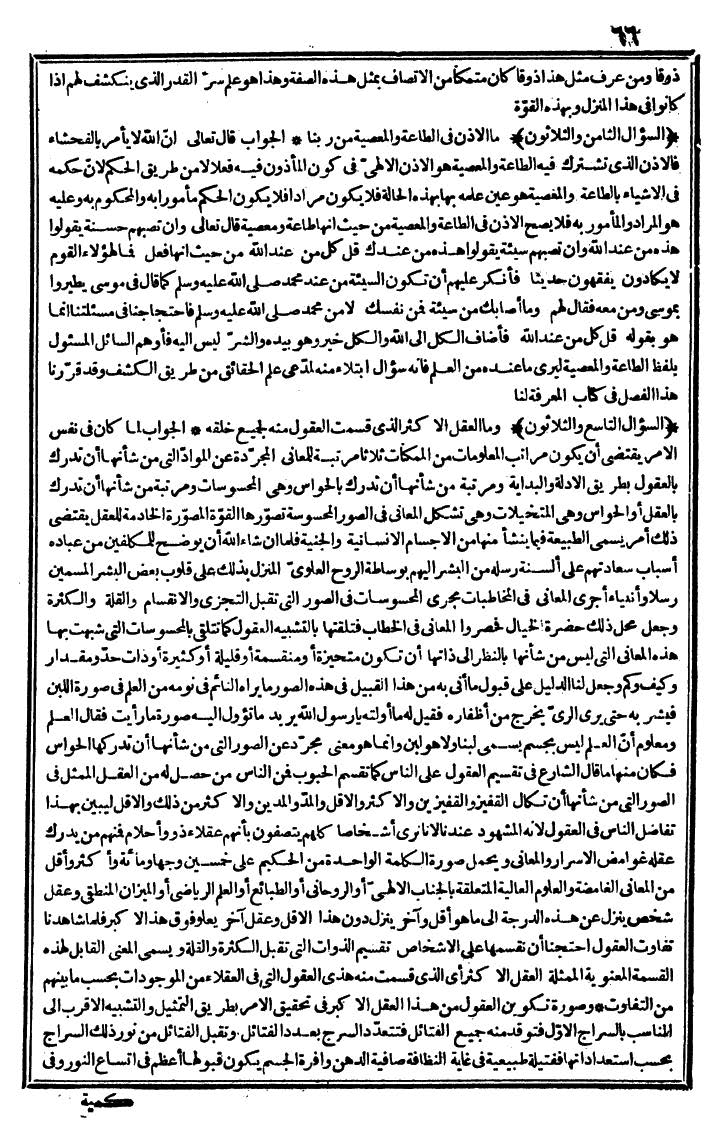 ٦٦
ذوقا ومن عرف مثل هذا ذوقا كان متمكنا من الاتصاف بمثل هذه الصفة وهذا هو علم سرّ القدر الذى ينكشف لهم اذا
كانوا فى هذا المنزل وبهذه القوّة
﴿السؤال الثامن والثلاثون﴾ ما الاذن فى الطاعة والمعصية من ربنا * الجواب قال تعالى انّ الله لا يأمر بالفحشاء
فالاذن الذى تشترك فيه الطاعة والمعصية هو الاذن الالهىّ فى كون المأذون فيه فعلا لا من طريق الحكم لانّ حكمه
فى الاشياء بالطاعة والمعصية هو عين علمه بها بهذه الحالة فلا يكون مرادا فلا يكون الحكم مأمورا به والمحكوم به وعليه
هو المراد والمأمور به فلا يصح الاذن فى الطاعة والمعصية من حيث انها طاعة ومعصية قال تعالى وان تصبهم حسنة يقولوا
هذه من عند الله وان تصبهم سيئة يقولوا هذه من عندك قل كل من عند الله من حيث انها فعل فما لهؤلاء القوم
لا يكادون يفقهون حديثا فأنكر عليهم أن تكون السيئة من عند محمد صلى الله عليه وسلم كما قال فى موسى يطيروا
بموسى ومن معه فقال لهم وما أصابك من سيئة فمن نفسك لا من محمد صلى الله عليه وسلم فاحتجاجنا فى مسئلتنا انما
هو بقوله قل كل من عند الله فأضاف الكل الى الله والكل خير وهو بيده والشرّ ليس اليه فأوهم السائل المسئول
بلفظ الطاعة والمعصية ليرى ما عنده من العلم فانه سؤال ابتلاء منه لمدّعى علم الحقائق من طريق الكشف وقد قرّرنا
هذا الفصل فى كتاب المعرفة لنا
﴿السؤال التاسع والثلاثون﴾ وما العقل الاكثر الذى قسمت العقول منه لجميع خلقه * الجواب لما كان فى نفس
الامر يقتضى أن يكون مراتب المعلومات من الممكنات ثلاثا مرتبة للمعانى المجرّدة عن الموادّ التى من شأنها أن تدرك
بالعقول بطريق الادلة والبداية ومرتبة من شأنها أن تدرك بالحواس وهى المحسوسات ومرتبة من شأنها أن تدرك
بالعقل أو الحواس وهى المتخيلات وهى تشكل المعانى فى الصور المحسوسة تصوّرها القوّة المصوّرة الخادمة للعقل يقتضى
ذلك أمر يسمى الطبيعة فيما ينشأ منها من الاجسام الانسانية والجنية فلما ان شاء الله أن يوضح للمكلفين من عباده
أسباب سعادتهم على ألسنة رسله من البشر اليهم بوساطة الروح العلوىّ المنزل بذلك على قلوب بعض البشر المسمين
رسلا وأنبياء أجرى المعانى فى المخاطبات مجرى المحسوسات فى الصور التى تقبل التجزى والانقسام والقلة والكثرة
وجعل محل ذلك حضرة الخيال فحصروا المعانى فى الخطاب فتلقتها بالتشبيه العقول كما تتلقى بالمحسوسات التى شبهت بها
هذه المعانى التى ليس من شأنها بالنظر الى ذاتها أن تكون متحيزة أو منقسمة أو قليلة أو كثيرة أو ذات حد ومقدار
وكيف وكم وجعل لنا الدليل على قبول ما أتى به من هذا القبيل فى هذه الصور ما يراه النائم فى نومه من العلم فى صورة اللبن
فيشربه حتى يرى الرىّ يخرج من أظفاره فقيل له ما أولته يا رسول الله يريد ما تؤول اليه صورة ما رأيت فقال العلم
ومعلوم أنّ العلم ليس بجسم يسمى لبنا ولا هو لبن وانما هو معنى مجرّد عن الصور التى من شأنها أن تدركها الحواس
فكان منها ما قال الشارع فى تقسيم العقول على الناس كما تقسم الحبوب فمن الناس من حصل له من العقل الممثل فى
الصور التى من شأنها أن تكال القفيز والقفيزين والاكثر والاقل والمدّ والمدين والاكثر من ذلك والاقل ليبين بهذا
تفاضل الناس فى العقول لانه المشهود عندنا لانا نرى أشخاصا كلهم يتصفون بأنهم عقلاء ذوو أحلام فمنهم من يدرك
عقله غوامض الاسرار والمعانى ويحمل صورة الكلمة الواحدة من الحكيم على خمسين وجها ومائة وأكثر وأقل
من المعانى الغامضة والعلوم العالية المتعلقة بالجناب الالهىّ أو الروحانى أو الطبائع أو العلم الرياضى أو الميزان المنطقى وعقل
شخص ينزل عن هذه الدرجة الى ما هو أقل وآخر ينزل دون هذا الاقل وعقل آخر يعلو فوق هذا الاكبر فلما شاهدنا
تفاوت العقول احتجنا أن نقسمها على الاشخاص تقسيم الذوات التى تقبل الكثرة والقلة ويسمى المعنى القابل لهذه
القسمة المعنوية الممثلة العقل الاكثر أى الذى قسمت منه هذى العقول التى فى العقلاء من الموجودات بحسب ما بينهم
من التفاوت * وصورة تكوين العقول من هذا العقل الاكبر فى تحقيق الامر بطريق التمثيل والتشبيه الاقرب الى
المناسب بالسراج الاوّل فتوقد منه جميع الفتائل فتتعدّد السرج بعدد الفتائل وتقبل الفتائل من نور ذلك السراج
بحسب استعداداتها ففتيلة طبيعية فى غاية النظافة صافية الدهن وافرة الجسم يكون قبولها أعظم فى اتساع النور وفى
كمية